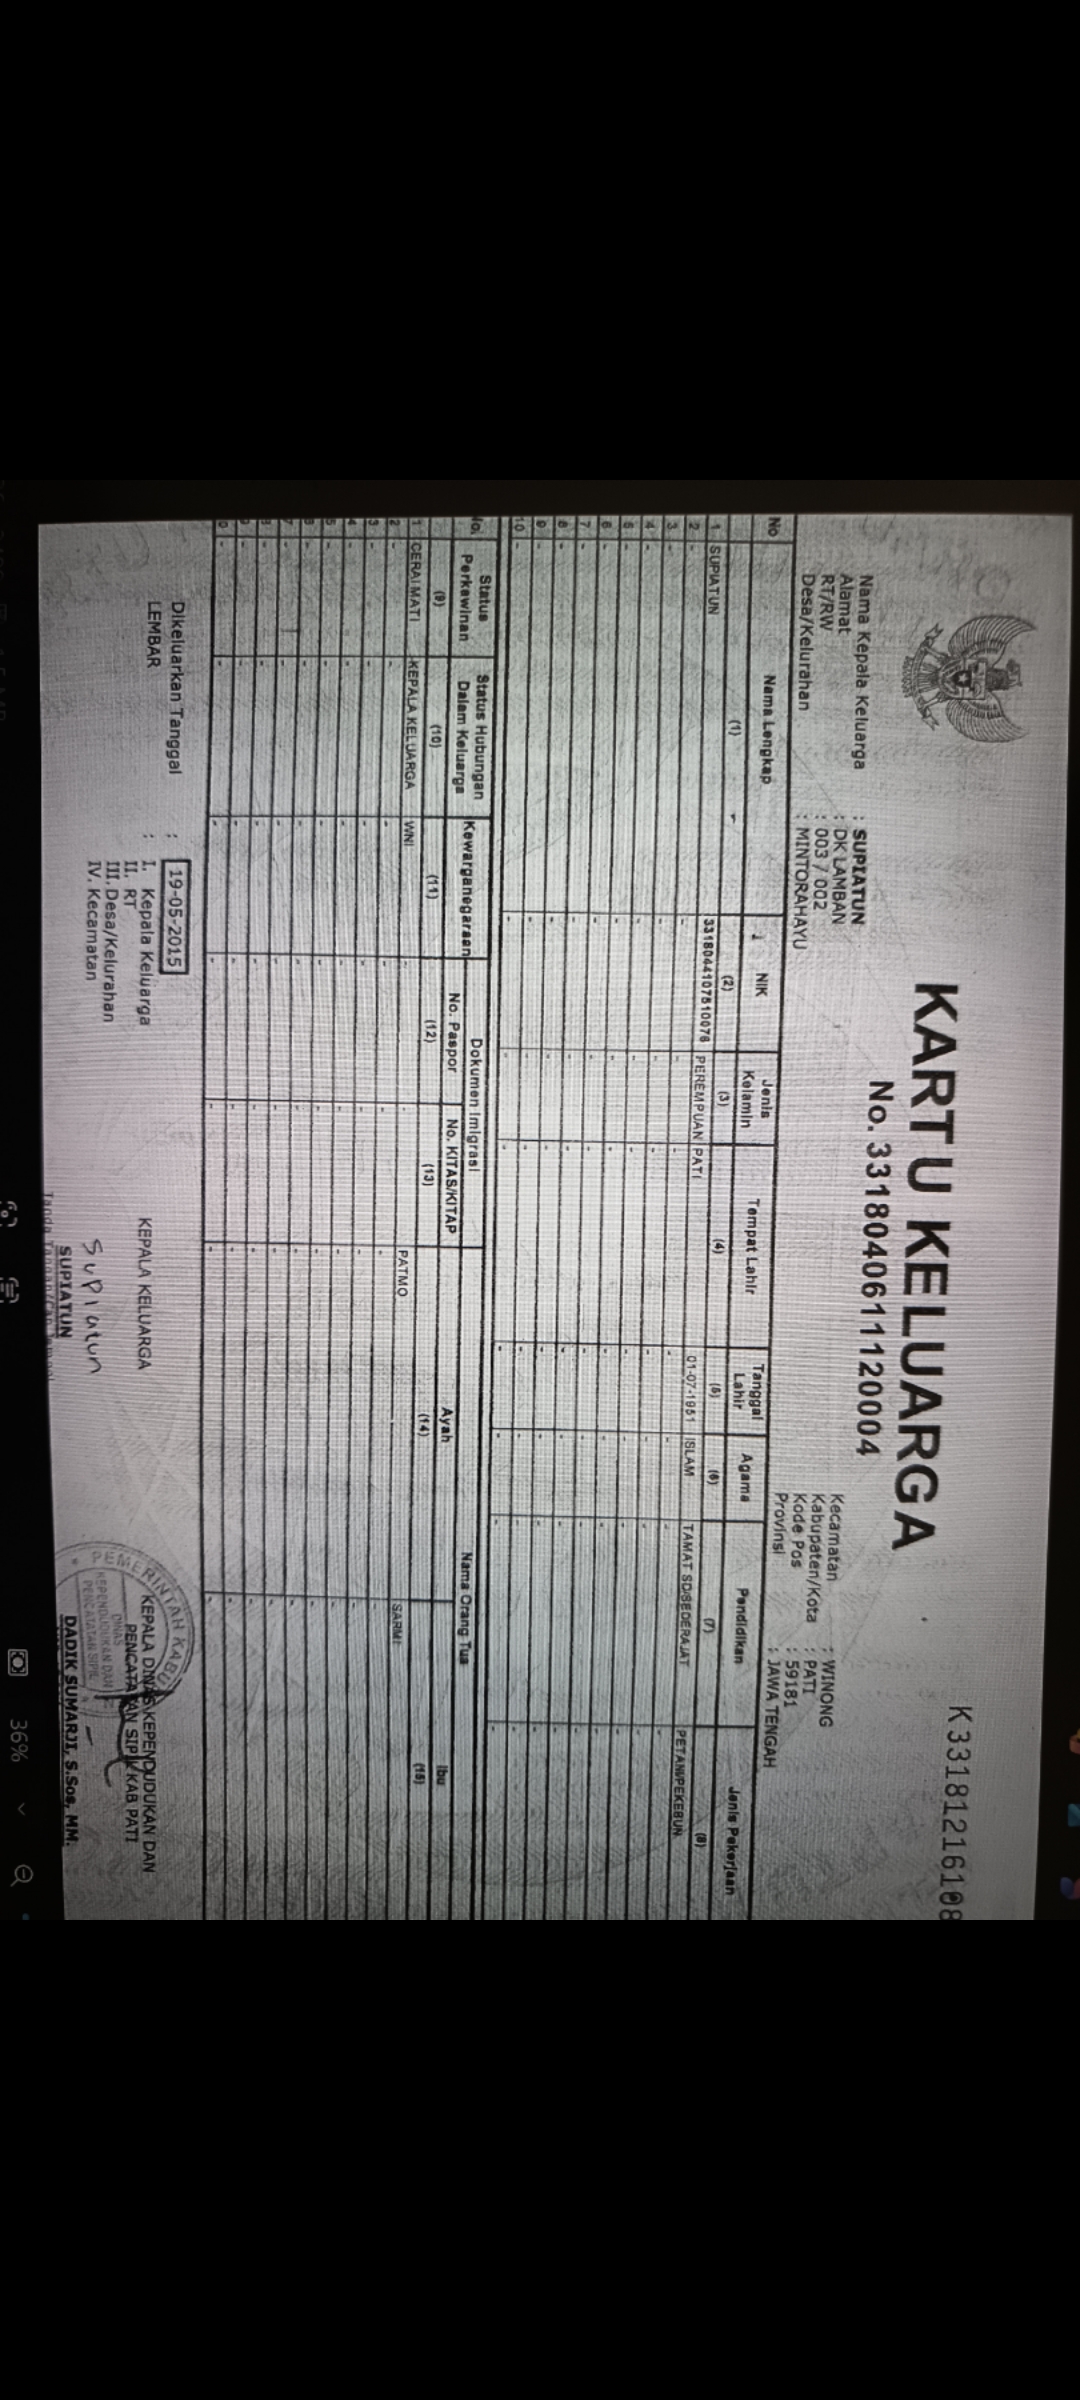 K33181216108
KARTU KELUARGA
No. 3318040611120004
Nama Kepala Keluarga : SUPIATUN
Alamat : DK LAMBAN
RT/RW : 003 / 002
Desa/Kelurahan : MINTORAHAYU
Kecamatan : WINONG
Kabupaten/Kota : PATI
Kode Pos : 59181
Provinsi : JAWA TENGAH
No Nama Lengkap NIK Jenis Kelamin Tempat Lahir Tanggal Lahir Agama Pendidikan Jenis Pekerjaan
(1) (2) (3) (4) (5) (6) (7) (8)
1 SUPIATUN 3318044107510076 PEREMPUAN PATI 01-07-1951 ISLAM TAMAT SD/SEDERAJAT PETANI/PEKEBUN
2 - - - - - - - -
3 - - - - - - - -
4 - - - - - - - -
5 - - - - - - - -
6 - - - - - - - -
7 - - - - - - - -
8 - - - - - - - -
9 - - - - - - - -
10 - - - - - - - -
No. Status Perkawinan Status Hubungan Dalam Keluarga Kewarganegaraan Dokumen Imigrasi Nama Orang Tua
No. Paspor No. KITAS/KITAP Ayah Ibu
(9) (10) (11) (12) (13) (14) (15)
1 CERAI MATI KEPALA KELUARGA WNI - - PATMO SARMI
2 - - - - - - -
3 - - - - - - -
4 - - - - - - -
5 - - - - - - -
6 - - - - - - -
7 - - - - - - -
8 - - - - - - -
9 - - - - - - -
0 - - - - - - -
Dikeluarkan Tanggal : 19-05-2015
LEMBAR : I. Kepala Keluarga
II. RT
III. Desa/Kelurahan
IV. Kecamatan
KEPALA KELUARGA
Supiatun
SUPIATUN
KEPALA DINAS KEPENDUDUKAN DAN
PENCATATAN SIPIL KAB PATI
PEMERINTAH KABU
DINAS
KEPENDUDUKAN DAN
PENCATATAN SIPIL
DADIK SUMARJI, S.Sos, MM.
36%